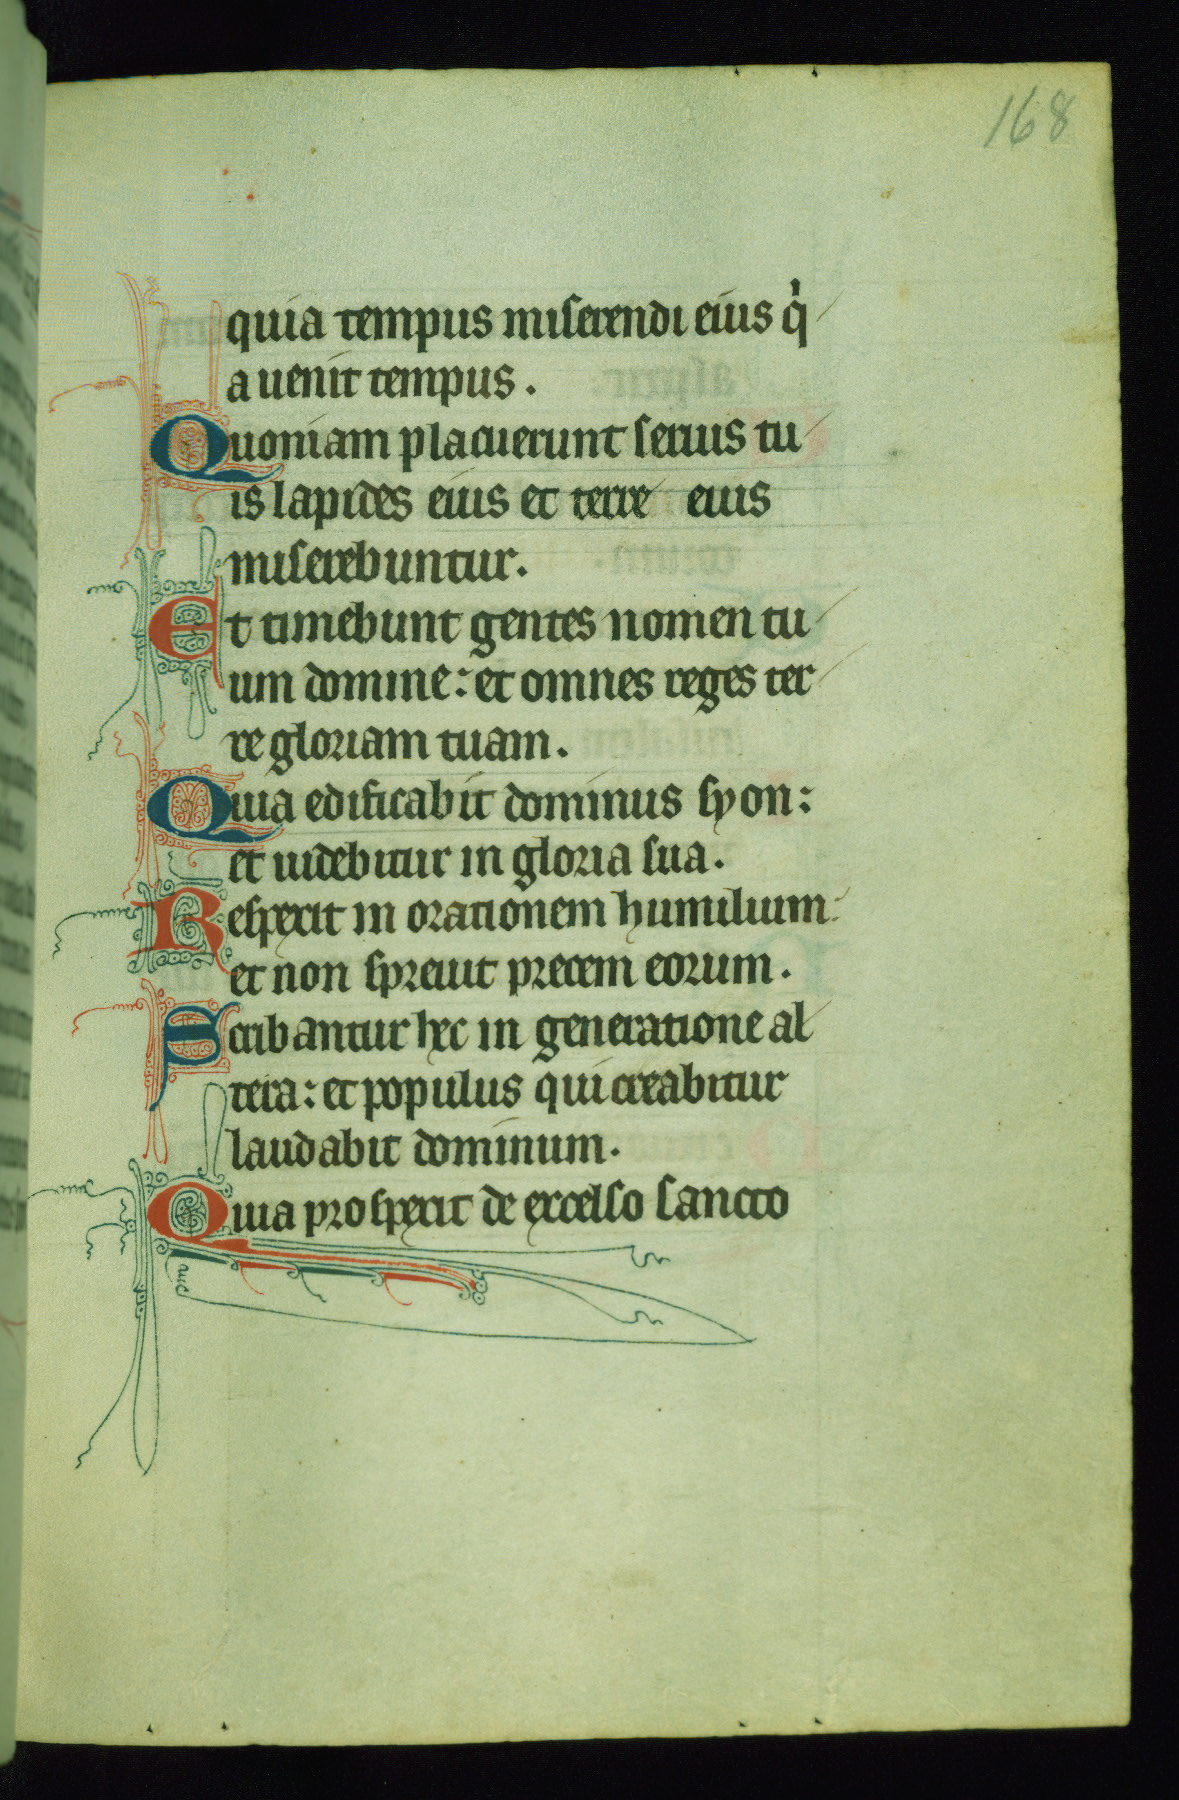 168
quia tempus miserendi eius qͥ
a uenit tempus.
Quoniam placuerunt seruis tu
is lapides eius et terre eius
miserebuntur.
Et timebunt gentes nomen tu
um domine: et omnes reges ter
re gloriam tuam.
Quia edificabit dominus syon:
et uidebitur in gloria sua.
Respexit in orationem humilium:
et non spreuit precem eorum.
Scribantur hec in generatione al
tera: et populus qui creabitur
laudabit dominum.
Quia prospexit de excelso sancto